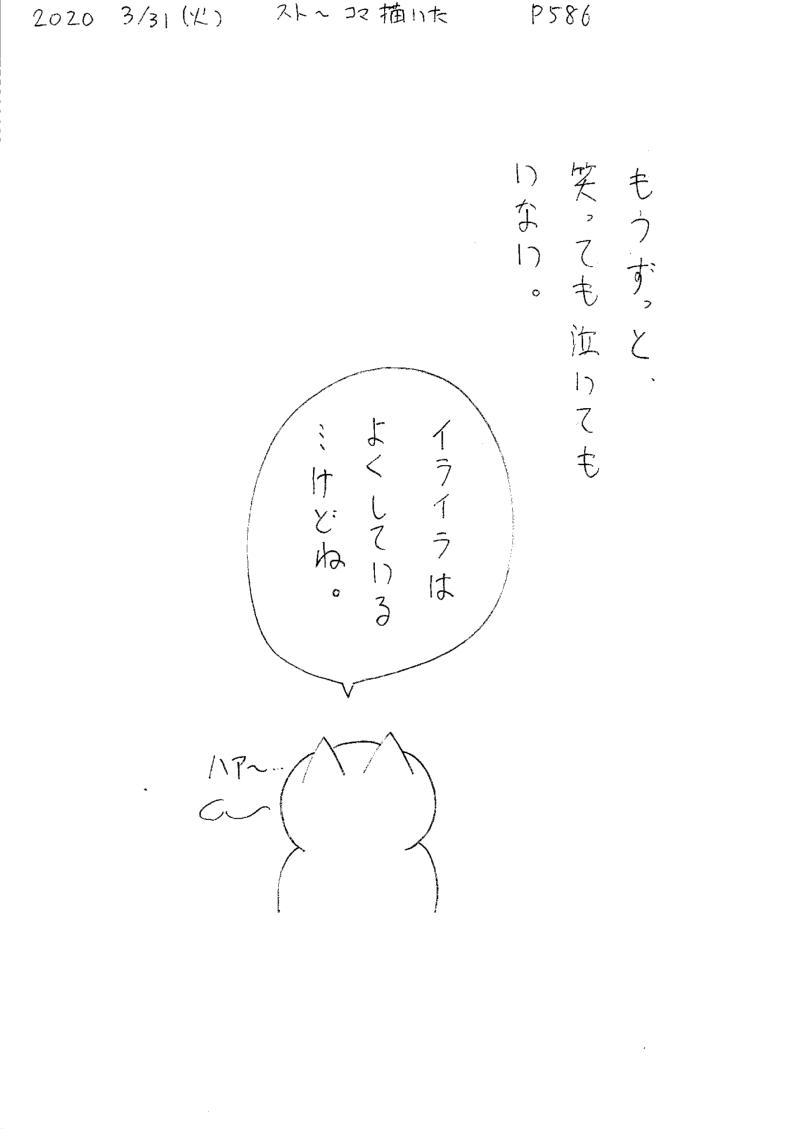 2020 3/31(火) スト〜コマ描いた P586
もうずっと、
笑っても泣いても
いない。
イライラは
よくしている
…けどね。
ハア〜…